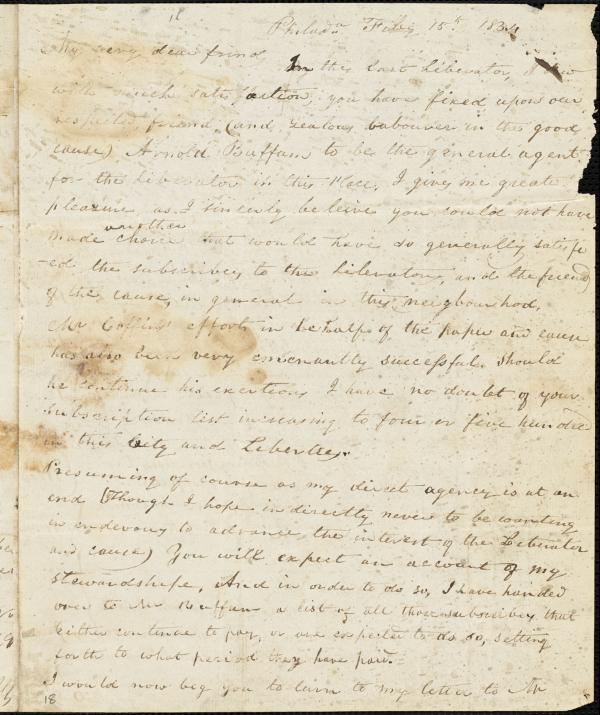 Philada Feby 15th 1834
My very dear friend, In the last Liberator, I saw
with much satisfaction, you have fixed upon our
respected friend (and zealous labourer in the good
cause) Arnold Buffum to be the general agent
for the Liberator in this Place. I give me great
pleasure as I sincerly beleive you could not have
another
made choice that would have so generally satisfi
-ed the subscribers to the Liberator, and the friend
of the cause, in general in this neighbourhood.
Mr efforts in behalf of the paper and cause
has also been very successful. Should
he continue his exertions I have no doubt of your
subscription list increasing to four or five hundred
in this City and Liberties.
Presuming of course as my direct agency is at an
end (though I hope in directly never to be wanting
in endevours to advance, the interest of the Liberator
and cause) You will expect an account of my
stewardshipe, And in order to do so, I have handed
over to Mr Buffum a list of all those subscribers that
Either continue to pay, or are expected to do so, setting
forth to what period they have paid.
I would now beg you to turn to my letter to Mr
18